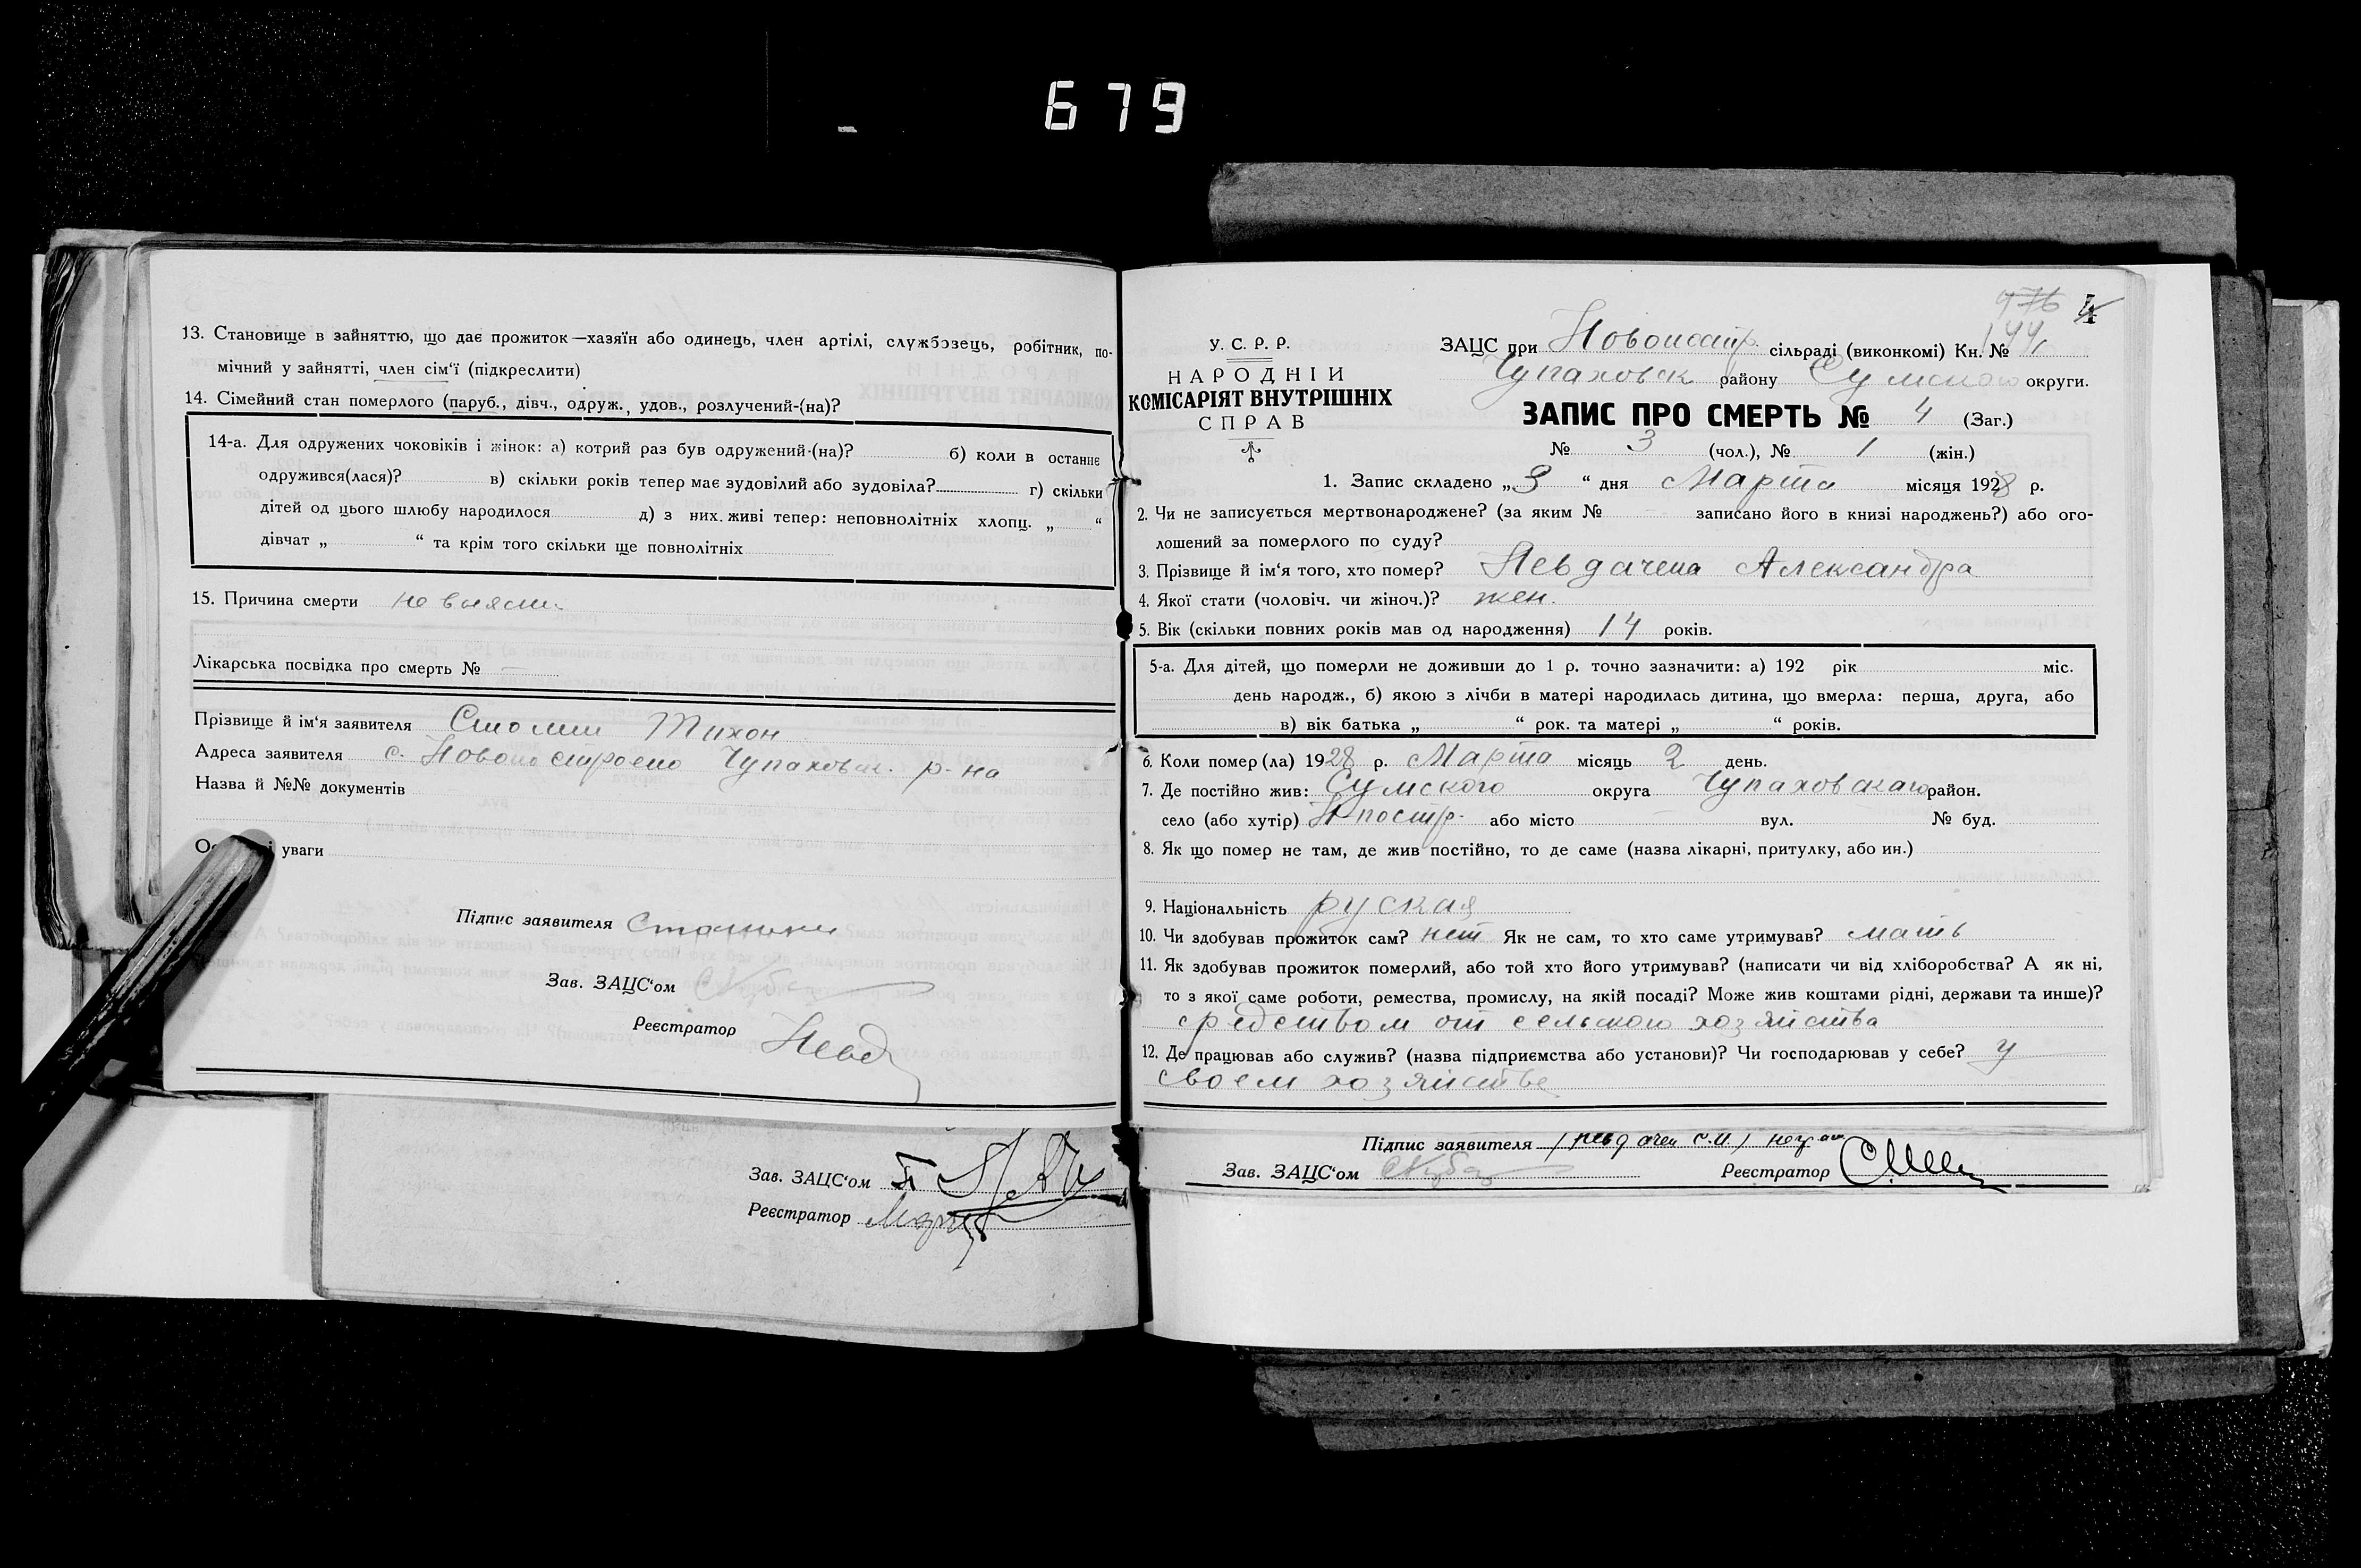 679
13. Становище в зайняттю, що дає прожиток—хазяїн або одинець, член артілі, службовець, робітник, по-
мічний у зайнятті, член сім'ї (підкреслити)
14. Сімейний стан померлого (паруб., дівч., одруж., удов., розлучений-(на)?
14-а. Для одружених чоковіків і жінок: а) котрий раз був одружений-(на)? б) коли в останнє
одружився(лася)? в) скільки років тепер має зудовілий або зудовіла? г) скільки
дітей од цього шлюбу народилося д) з них. живі тепер: неповнолітніх хлопц. „ “
дівчат „ “ та крім того скільки ще повнолітніх
15. Причина смерти не выясн.
Лікарська посвідка про смерть № —
Прізвище й ім'я заявителя Тихон
Адреса заявителя с. Новопостроено Чупаховск. р-на
Назва й №№ документів
уваги
Підпис заявителя
Зав. ЗАЦС'ом
Реєстратор Невд
Зав. ЗАЦС'ом
Реєстратор
4
144
У. С. Р. Р.
НАРОДНІЙ
КОМІСАРІЯТ ВНУТРІШНІХ
СПРАВ
ЗАЦС при Новопостр. сільраді (виконкомі) Кн. №
Чупаховск району Сумского округи.
ЗАПИС ПРО СМЕРТЬ № 4 (Заг.)
№ 3 (чол.), № 1 (жін.)
1. Запис складено „3 “ дня Марта місяця 1928 р.
2. Чи не записується мертвонароджене? (за яким № записано його в книзі народжень?) або ого-
лошений за померлого по суду?
3. Прізвище й ім'я того, хто помер? Невдачена Александра
4. Якої стати (чоловіч. чи жіноч.)? жен.
5. Вік (скільки повних років мав од народження) 14 років.
5-а. Для дітей, що померли не доживши до 1 р. точно зазначити: а) 192 рік міс.
день народж., б) якою з лічби в матері народилась дитина, що вмерла: перша, друга, або
в) вік батька „ “ рок. та матері „ “ років.
6. Коли помер(ла) 1928 р. Марта місяць 2 день.
7. Де постійно жив: Сумского округа Чупаховскаго район.
село (або хутір) Н постр. або місто вул. № буд.
8. Як що помер не там, де жив постійно, то де саме (назва лікарні, притулку, або ин.)
9. Національність руская
10. Чи здобував прожиток сам? нет Як не сам, то хто саме утримував? мать
11. Як здобував прожиток померлий, або той хто його утримував? (написати чи від хліборобства? А як ні,
то з якої саме роботи, ремества, промислу, на якій посаді? Може жив коштами рідні, держави та инше)?
средством от сельского хозяйства
12. Де працював або служив? (назва підприємства або установи)? Чи господарював у себе? у
своем хозяйстве
Підпис заявителя
Зав. ЗАЦС'ом
Реєстратор